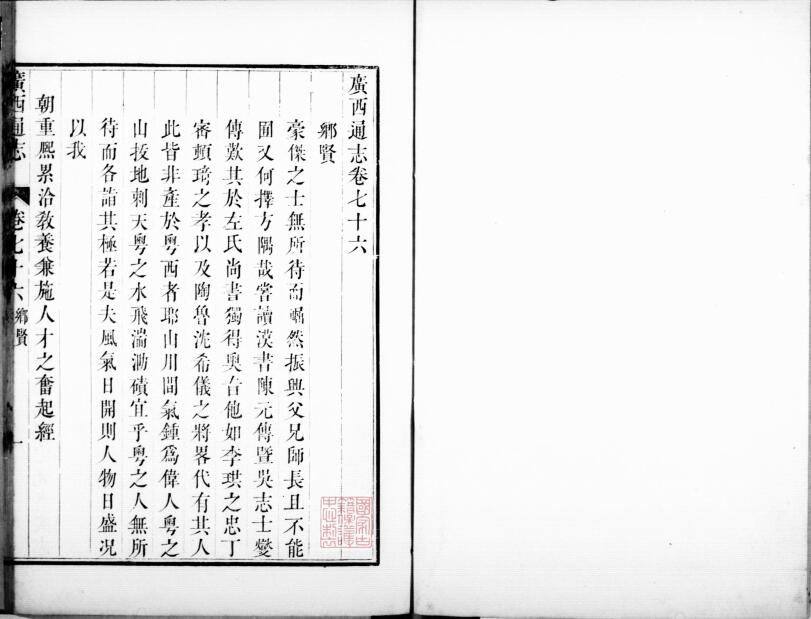 廣西通志卷七十六
鄉賢
豪傑之士無所待而崛然振興父兄師長且不能
囿又何擇方隅哉嘗讀漢書陳元傳暨吳志士燮
傳歎其於左氏尚書獨得奧旨他如李珙之忠丁
審頼琦之孝以及陶魯沈希儀之將畧代有其人
此皆非產於粵西者耶山川間氣鍾爲偉人粵之
山拔地刺天粵之水飛湍泐磧宜乎粵之人無所
待而各詣其極若是夫風氣日開則人物日盛况
以我
朝重熈累洽敎養兼施人才之奮起經
廣西通志 卷七十六 鄉賢 一